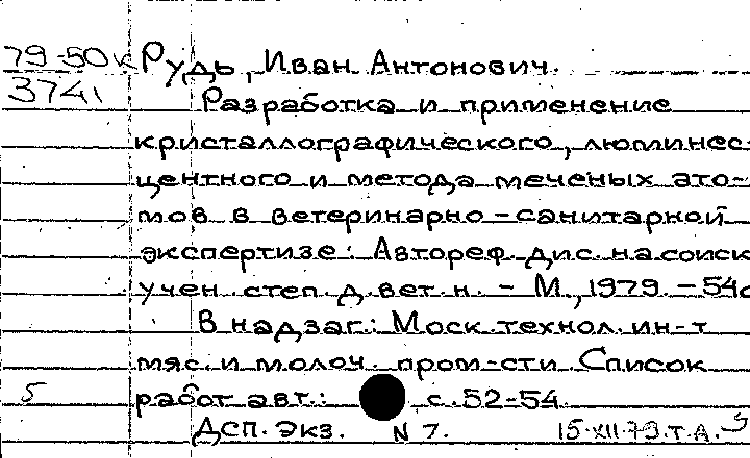 79-50к Рудь, Иван Антонович.
3741 Разработка и применение
кристаллографического, люминес-
центного и метода меченых ато-
мов в ветеринарно-санитарной
экспертизе: Автореф. дис. на соиск
учен. степ. д. вет. н. - М., 1979. - 54с
В надзаг.: Моск. технол. ин-т
мяс. и молоч. пром-сти. Список
5 работ авт.: с. 52-54.
Дсп. Экз. N 7. 15-XII-79. Т.А.